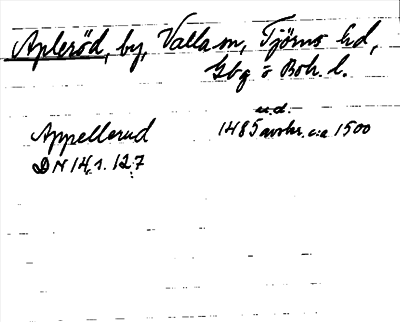 Apleröd, by, Valla sn, Tjörns hd,
Gbg o Boh. l.
u.d.
Appellerud 1485 avskr. c:a 1500
DN 14, s. 127